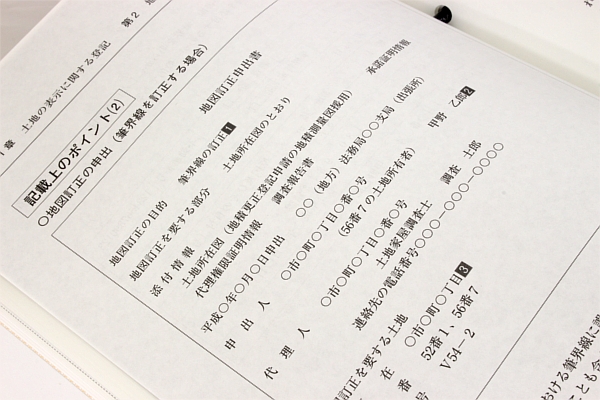 土地の表示に関する登記
第2
記載上のポイント(2)
○地図訂正の申出(筆界線を訂正する場合)
地図訂正申出書
地図訂正の目的 筆界線の訂正1
地図訂正を要する部分 土地所在図のとおり
添付情報
土地所在図(地積更正登記申請の地積測量図援用)
代理権限証明情報 調査報告書 承諾証明情報
平成○年○月○日申出 ○○(地方)法務局○○支局(出張所)
申出人 ○市○町○丁目○番○号
(56番7の土地所有者) 甲野 乙郎2
代理人 ○市○町○丁目○番○号
土地家屋調査士 調査 士郎
連絡先の電話番号○○○-○○○-○○○○
訂正を要する土地
在 ○市○町○丁目3
番 52番1、56番7
号 V54-2
おける筆界線に誤
ことも含